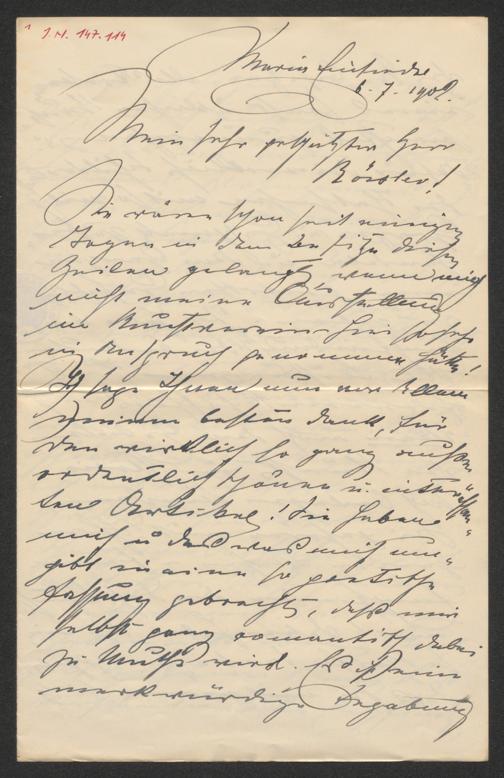 J.N. 147.114
Maria Einsiedel
6. 7. 1902.
Mein sehr geschätzter Herr
Rössler!
Sie wären schon seit einigen
Tagen in dem Besitze dieser
Zeilen gelangt wenn mich
nicht meine Ausstellung
im Kunstverein hier so sehr
in Anspruch genommen hätte!
Ich sage Ihnen nun vor Allem
meinen besten Dank, für
den wirklich so ganz außer
ordentlich schönen u. interessan-
ten Artikel! Sie haben
mich u. das was mich um-
gibt in eine so poetische
Fassung gebracht, daß mir
selbst ganz romantisch dabei
zu Muthe wird. Es ist eine
merkwürdige Begabung